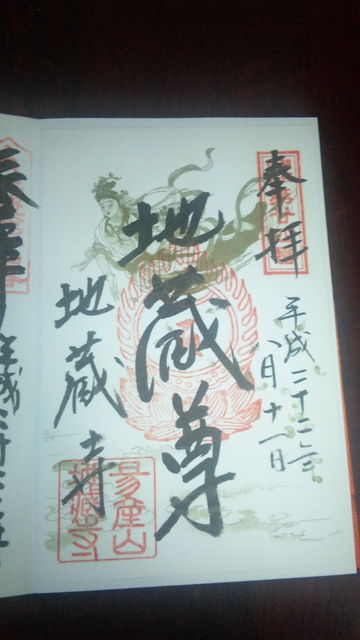 奉拝
平成二十二年
八月十一日
地蔵尊
地蔵寺
易産山